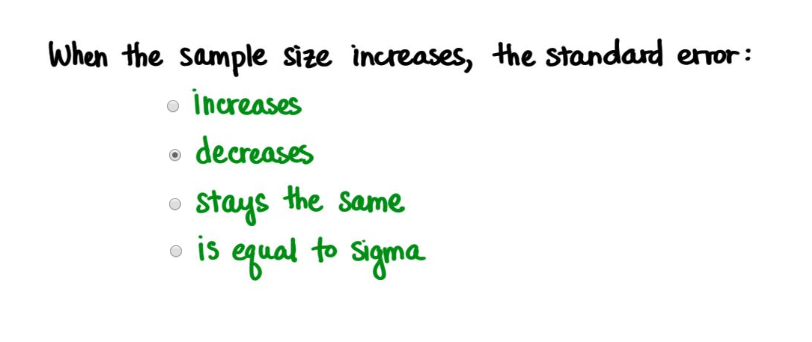 When the sample size increases, the standard error:
increases
decreases
stays the same
is equal to sigma